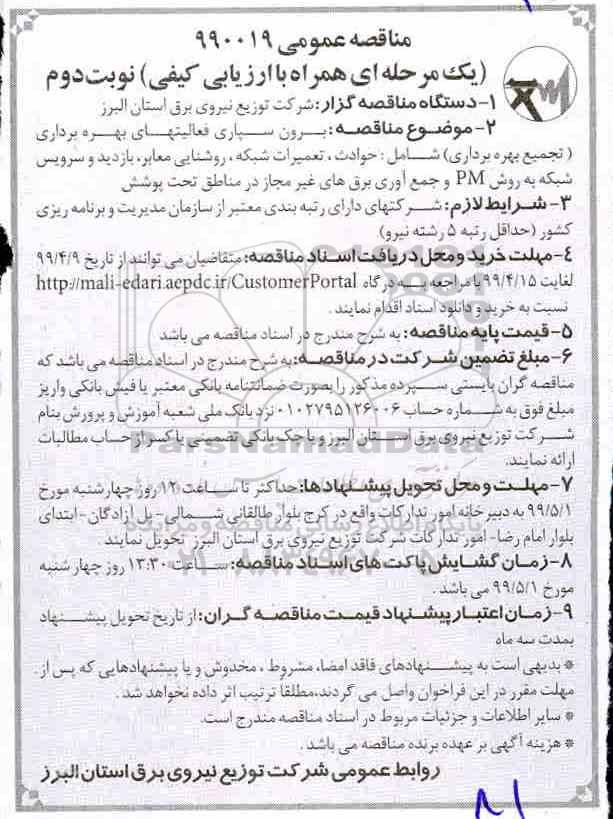 مناقصه عمومی ۹۹۰۰۱۹
(یک مرحله ای همراه با ارزیابی کیفی) نوبت دوم
۱- دستگاه مناقصه گزار: شرکت توزیع نیروی برق استان البرز
۲- موضوع مناقصه: برون سپاری فعالیتهای بهره برداری
(تجمیع بهره برداری) شامل: حوادث، تعمیرات شبکه، روشنایی معابر، بازدید و سرویس
شبکه به روش PM و جمع آوری برق های غیر مجاز در مناطق تحت پوشش
۳- شرایط لازم: شرکتهای دارای رتبه بندی معتبر از سازمان مدیریت و برنامه ریزی
کشور (حداقل رتبه ۵ رشته نیرو)
۴- مهلت خرید و محل دریافت اسناد مناقصه: متقاضیان می توانند از تاریخ ۹۹/۴/۹
لغایت ۹۹/۴/۱۵ با مراجعه به درگاه http://mali-edari.aepdc.ir/CustomerPortal
نسبت به خرید و دانلود اسناد اقدام نمایند.
۵- قیمت پایه مناقصه: به شرح مندرج در اسناد مناقصه می باشد
۶- مبلغ تضمین شرکت در مناقصه: به شرح مندرج در اسناد مناقصه می باشد که
مناقصه گران بایستی سپرده مذکور را بصورت ضمانتنامه بانکی معتبر یا فیش بانکی واریز
مبلغ فوق به شماره حساب ۰۱۰۲۷۹۵۱۲۶۰۰۶ نزد بانک ملی شعبه آموزش و پرورش بنام
شرکت توزیع نیروی برق استان البرز و یا چک بانکی تضمینی یا کسر از حساب مطالبات
ارائه نمایند.
۷- مهلت و محل تحویل پیشنهادها: حداکثر تا ساعت ۱۲ روز چهارشنبه مورخ
۹۹/۵/۱ به دبیرخانه امور تدارکات واقع در کرج بلوار طالقانی شمالی- پل آزادگان- ابتدای
بلوار امام رضا- امور تدارکات شرکت توزیع نیروی برق استان البرز تحویل نمایند.
۸- زمان گشایش پاکت های اسناد مناقصه: ساعت ۱۳:۳۰ روز چهار شنبه
مورخ ۹۹/۵/۱ می باشد.
۹- زمان اعتبار پیشنهاد قیمت مناقصه گران: از تاریخ تحویل پیشنهاد
بمدت سه ماه
* بدیهی است به پیشنهادهای فاقد امضا، مشروط، مخدوش و یا پیشنهادهایی که پس از
مهلت مقرر در این فراخوان واصل می گردند، مطلقا ترتیب اثر داده نخواهد شد.
* سایر اطلاعات و جزئیات مربوط در اسناد مناقصه مندرج است.
* هزینه آگهی بر عهده برنده مناقصه می باشد.
روابط عمومی شرکت توزیع نیروی برق استان البرز
ParsNamadData
پایگاه اطلاع رسانی مناقصه و مزایده